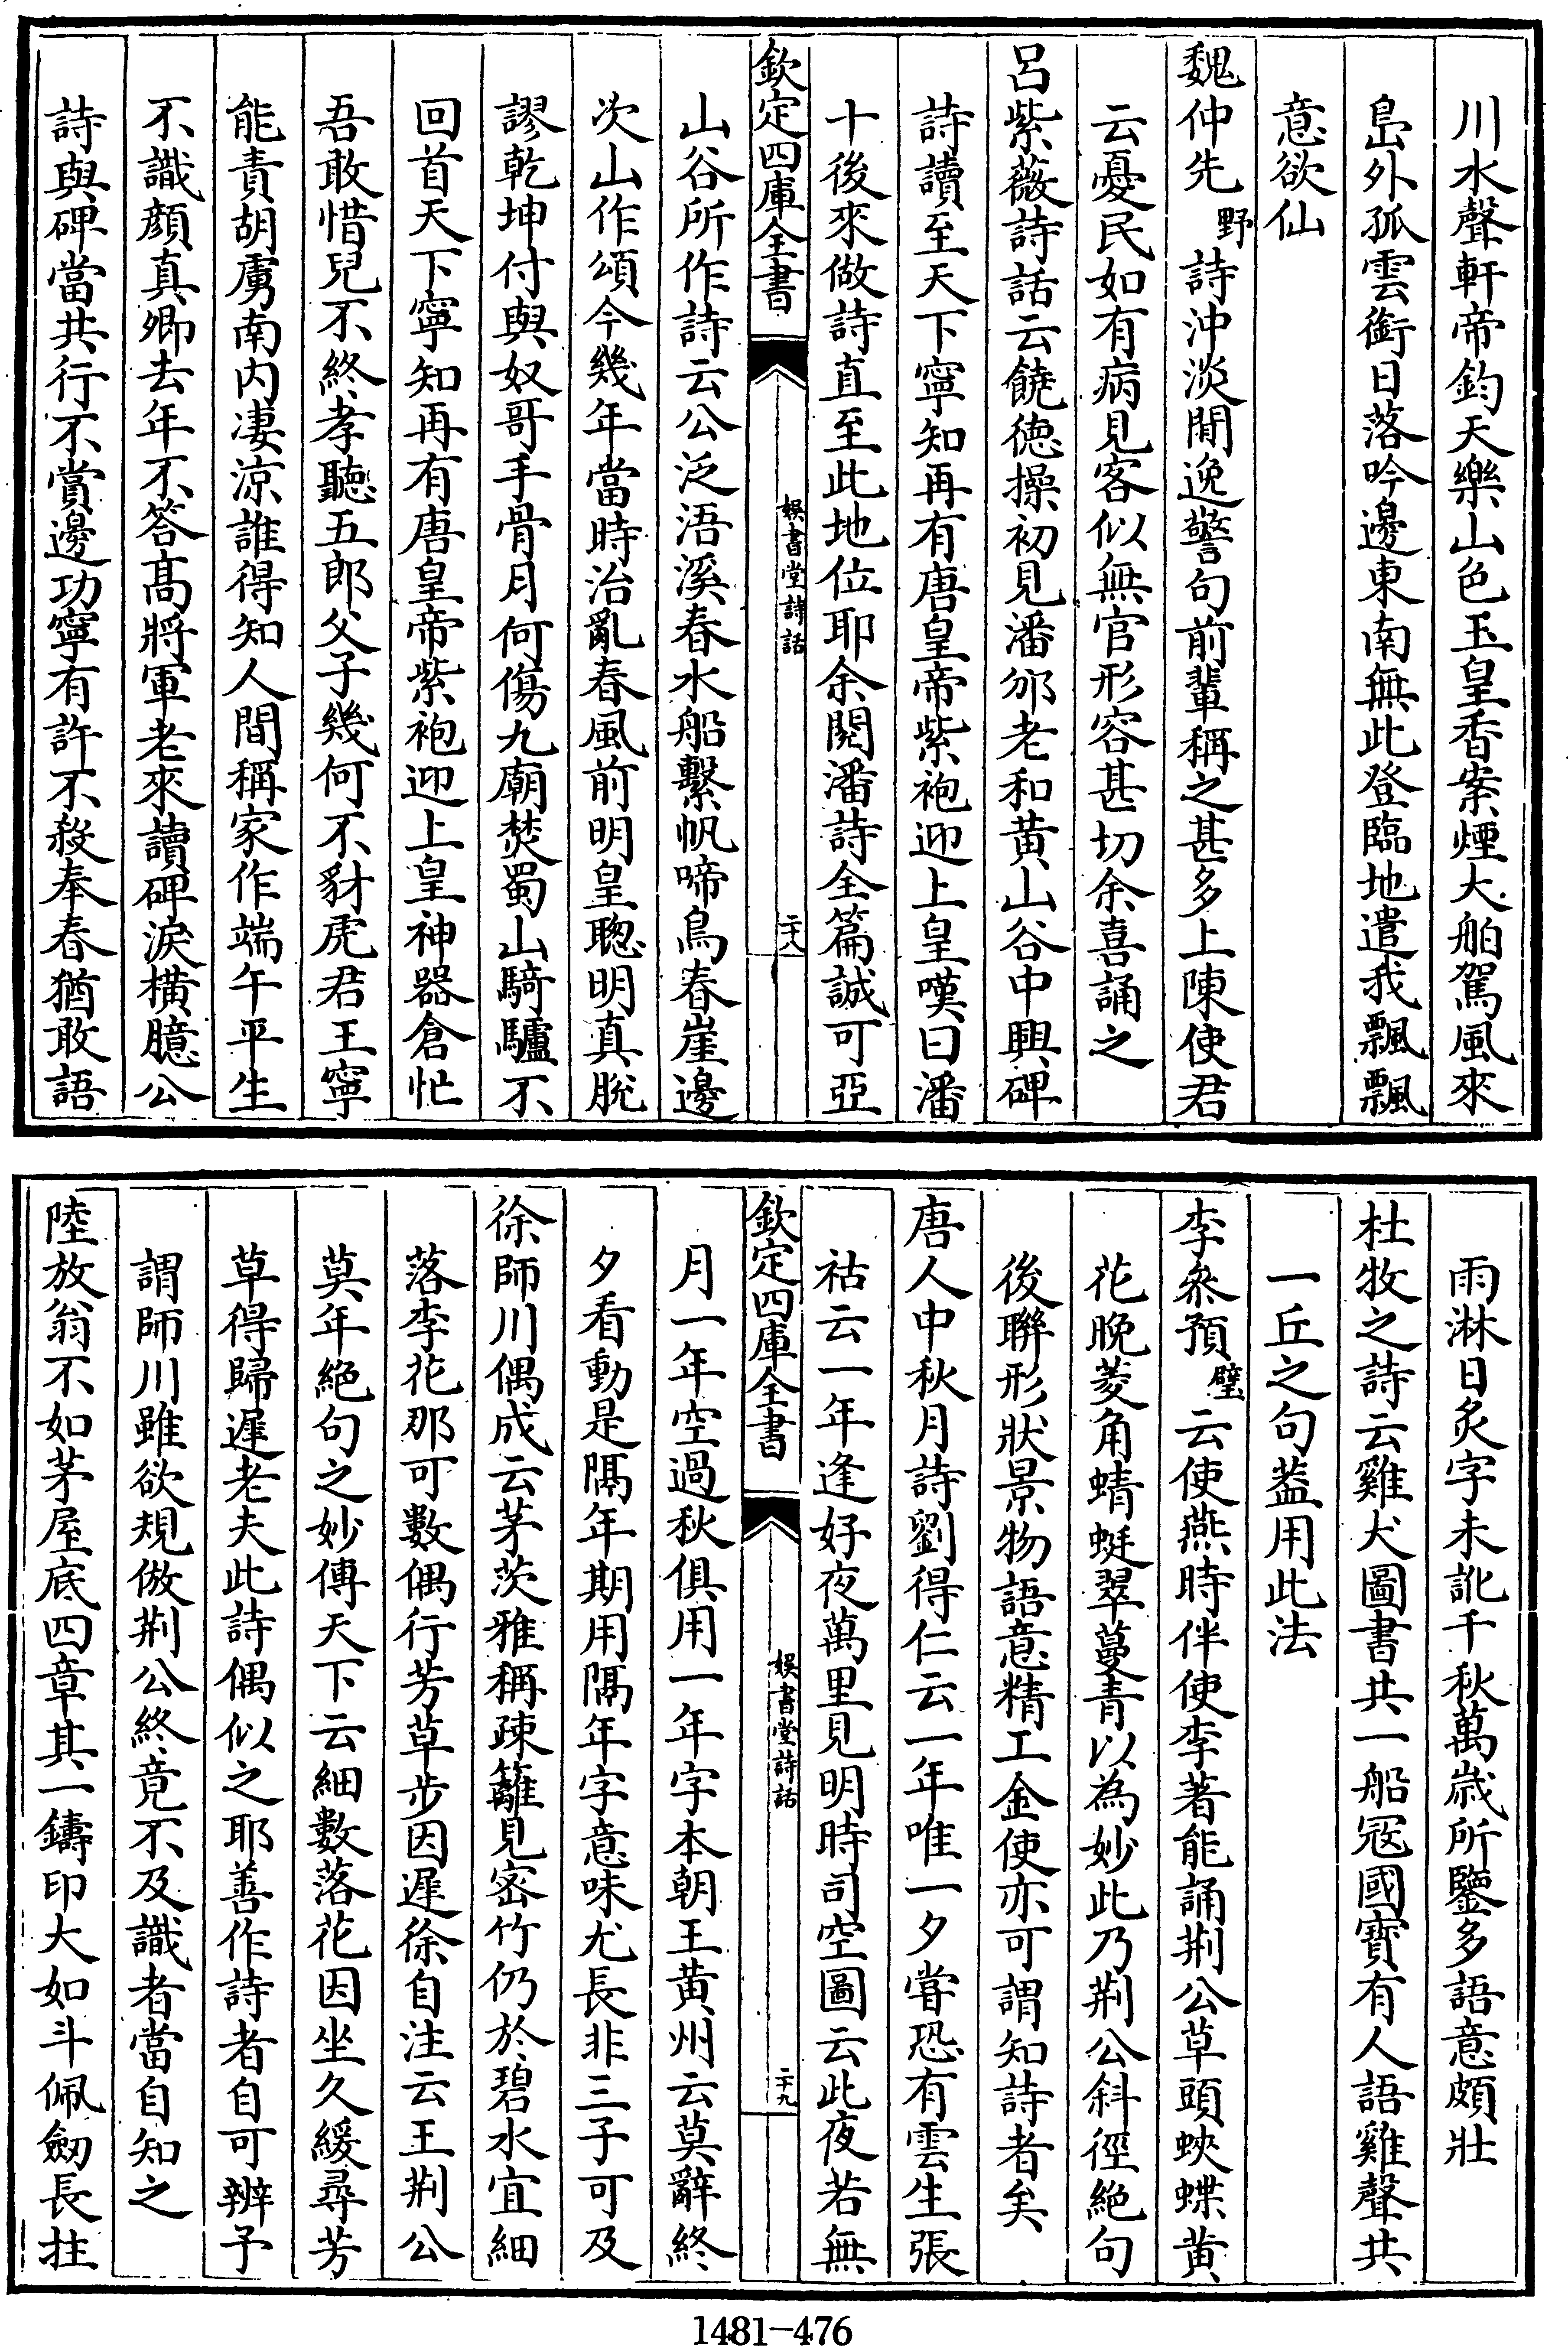 川水聲軒帝鈞天樂山色玉皇香案煙大舶駕風來
島外孤雲銜日落吟邊東南無此登臨地遣我飄飄
意欲仙
魏仲先野詩沖淡閒逸警句前輩稱之甚多上陳使君
云憂民如有病見客似無官形容甚切余喜誦之
呂紫薇詩話云饒徳操初見潘邠老和黃山谷中興碑
詩讀至天下寧知再有唐皇帝紫袍迎上皇嘆曰潘
十後來做詩直至此地位耶余閱潘詩全篇誠可亞
欽定四庫全書 娯書堂詩話 二十八
山谷所作詩云公泛浯溪春水船繫帆啼鳥春崖邊
次山作頌今幾年當時治亂春風前明皇聰明真脫
謬乾坤付與奴哥手骨月何傷九廟焚蜀山騎驢不
回首天下寧知再有唐皇帝紫袍迎上皇神器倉忙
吾敢惜兒不終孝聽五郎父子幾何不豺虎君王寧
能責胡虜南内凄涼誰得知人間稱家作端午平生
不識顔真卿去年不答髙將軍老來讀碑淚橫臆公
詩與碑當共行不賞邊功寧有許不殺奉春猶敢語
雨淋日炙字未訛千秋萬歳所鑒多語意頗壯
杜牧之詩云雞犬圖書共一船冦國寳有人語雞聲共
一丘之句葢用此法
李叅預壁云使燕時伴使李著能誦荆公草頭蛺蝶黃
花晚菱角蜻蜓翠蔓青以為妙此乃荆公斜徑絶句
後聯形狀景物語意精工金使亦可謂知詩者矣
唐人中秋月詩劉得仁云一年唯一夕甞恐有雲生張
祜云一年逢好夜萬里見明時司空圖云此夜若無
欽定四庫全書 娯書堂詩話 二十九
月一年空過秋俱用一年字本朝王黃州云莫辭終
夕看動是隔年期用隔年字意味尤長非三子可及
徐師川偶成云茅茨雅稱疎籬見密竹仍於碧水宜細
落李花那可數偶行芳草步因遲徐自注云王荆公
莫年絶句之妙傳天下云細數落花因坐久緩尋芳
草得歸遲老夫此詩偶似之耶善作詩者自可辨予
謂師川雖欲規倣荆公終竟不及識者當自知之
陸放翁不如茅屋底四章其一鑄印大如斗佩劒長拄
1481-476